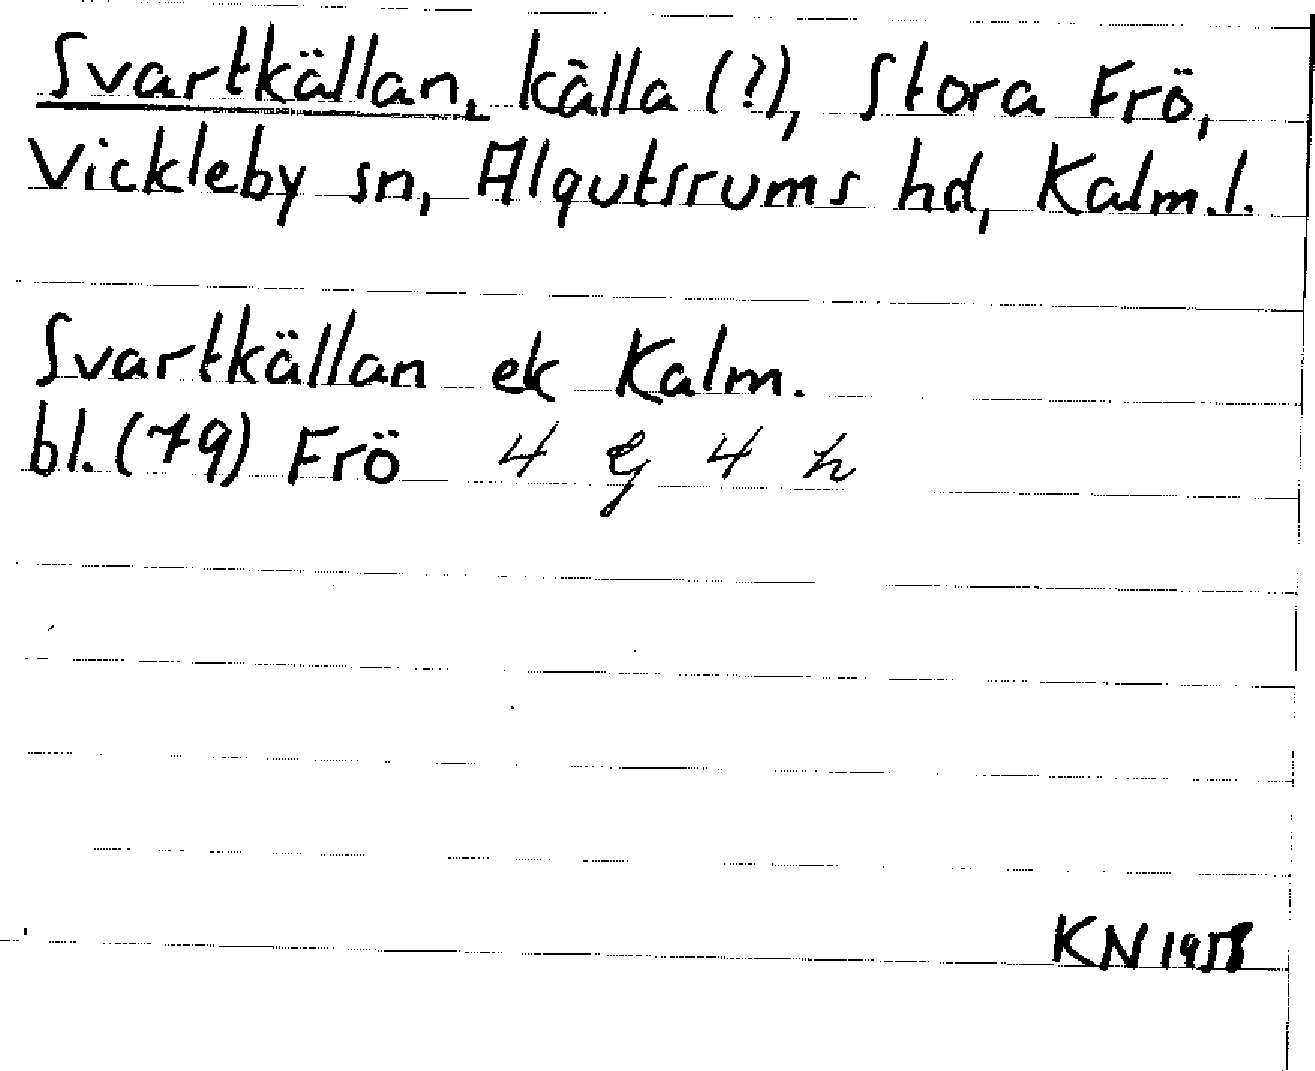 Svartkällan, källa (?), Stora Frö,
Vickleby sn, Algutsrums hd, Kalm.l.
Svartkällan ek Kalm.
bl. (79) Frö 4 g 4 h
KN 1958